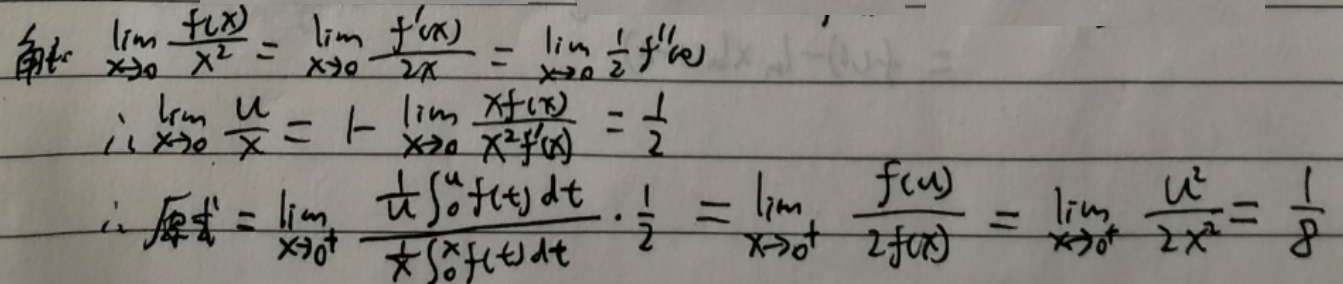 解: lim_{x→0} f(x)/x² = lim_{x→0} f'(x)/2x = lim_{x→0} 1/2 f''(0)
∴ lim_{x→0} u/x = 1 - lim_{x→0} xf(x)/x²f'(x) = 1/2
∴ 原式 = lim_{x→0⁺} (1/u ∫₀ᵘ f(t)dt)/(1/x ∫₀ˣ f(t)dt) · 1/2 = lim_{x→0⁺} f(u)/2f(x) = lim_{x→0⁺} u²/2x² = 1/8